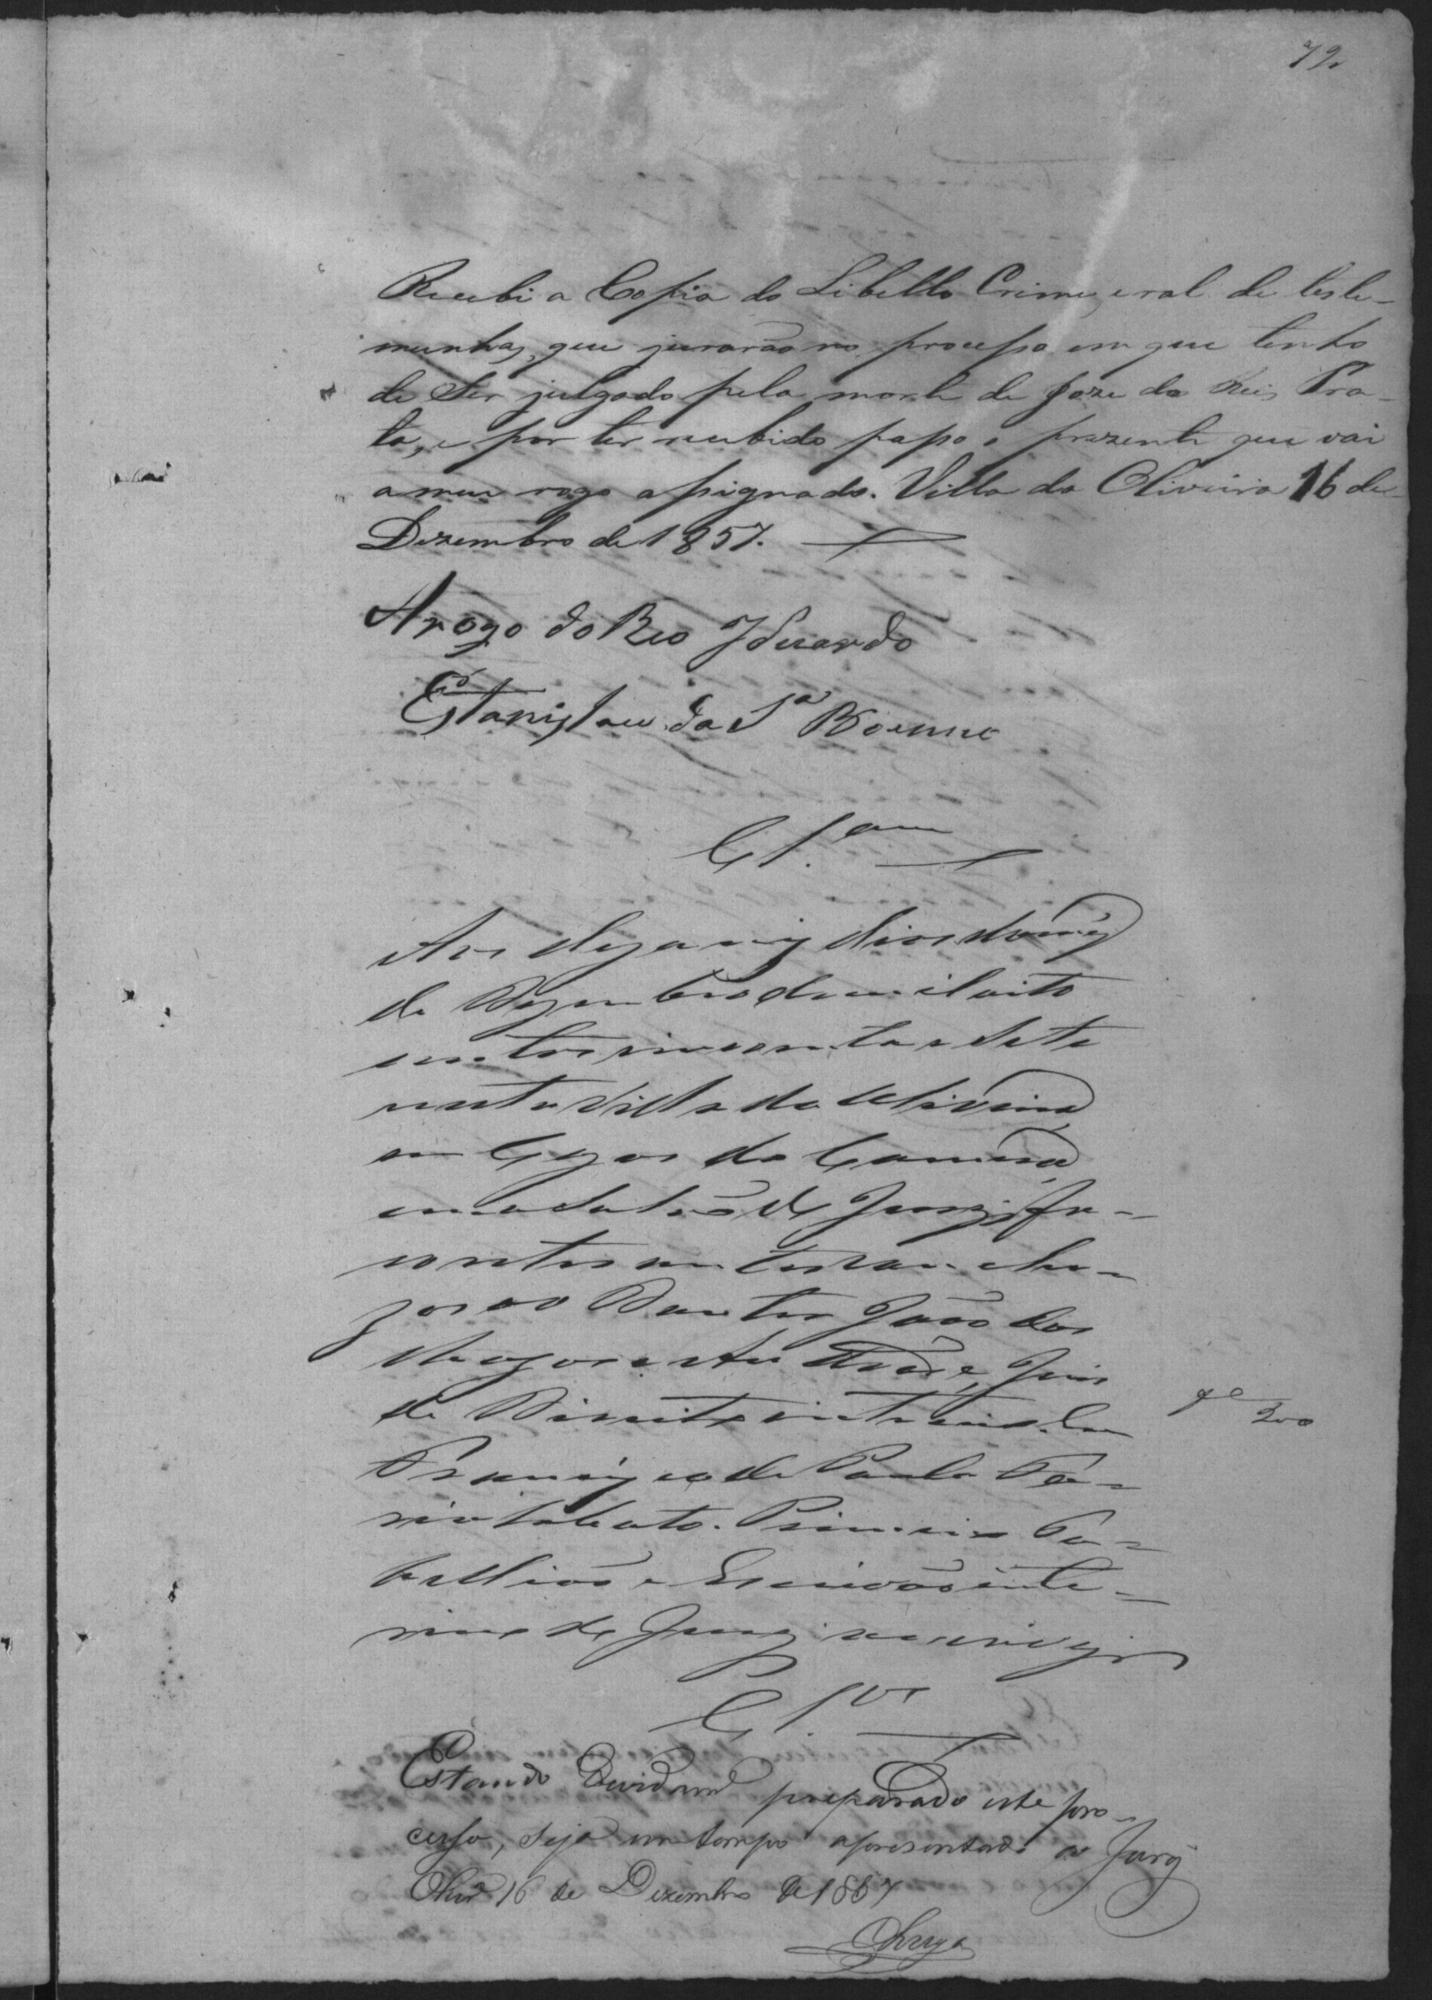 72
Recebi a Copia do Libello Crime, e rol de teste-
munhas, que jurarão no processo em que tenho
de ser julgado pela morte de Joze do Reis Pra-
ta, e por ter recebido passo o prezente que vai
a meu rogo assignado. Villa da Oliveira 16 de
Dezembro de 1857.
Arogo do Reo Iduardo
Estanislau da Sª
Cl.am
Aos dezaseis dias do mes
de Dezembro de mil oito
centos sincoenta e sete
nesta Villa da Oliveira
em Cazas da Camera
de Jury fa-
ço estes autos conclu-
zos ao Doutor João das
Juis
de Direito interino. Eu
Francisco de Paula
Primeiro Ta-
bellião e Escrivão inte-
rino do Jury escrevi
gº 200
Cl.os
Estando devidamte preparado este pro-
cesso, seja em tempo apresentado ao Jury
Olivrª 16 de Dezembro de 1857